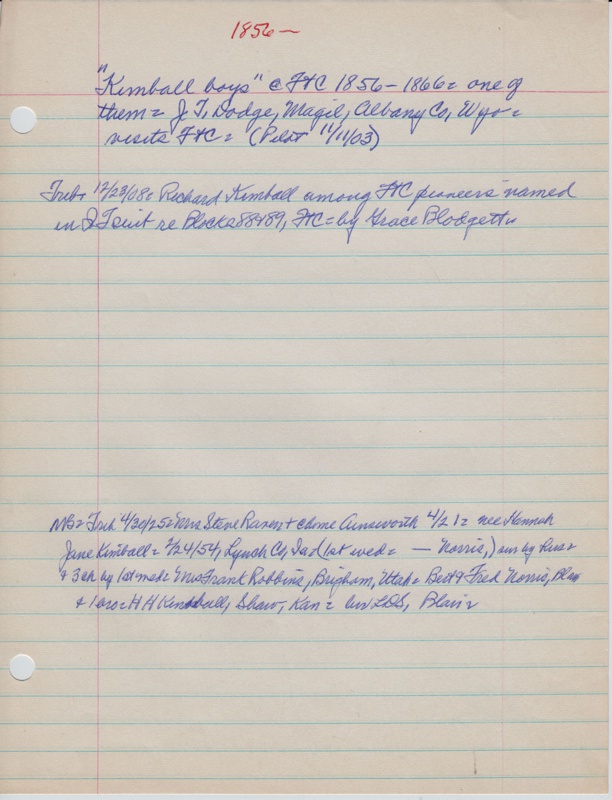 1856—
"Kimball boys" @ FtC 1856-1866= one of
them= J. T. Dodge, Magil, Albany Co, Wyo=
visits FtC= (Pilot 11/11/03)
Trib+ 12/23/08= Richard Kimball among FtC pioneers named
in suit re Blocks 88+89, FtC= by Grace Blodgett=
Trib 4/30/25= Mrs Steve Raver + @ home Ainsworth 4/21= nee Hannah
Jane Kimball= 2/24/54, Lynch Co, Ia (1st wed= — Norris,) sur by hus=
+ 3 ch by 1st mar= Mrs Frank Robbins, Brigham, Utah= Bert + Fred Norris, Blair
+ 1 bro= H H Kimball, Shaw, Kan= bur LDS, Blair=